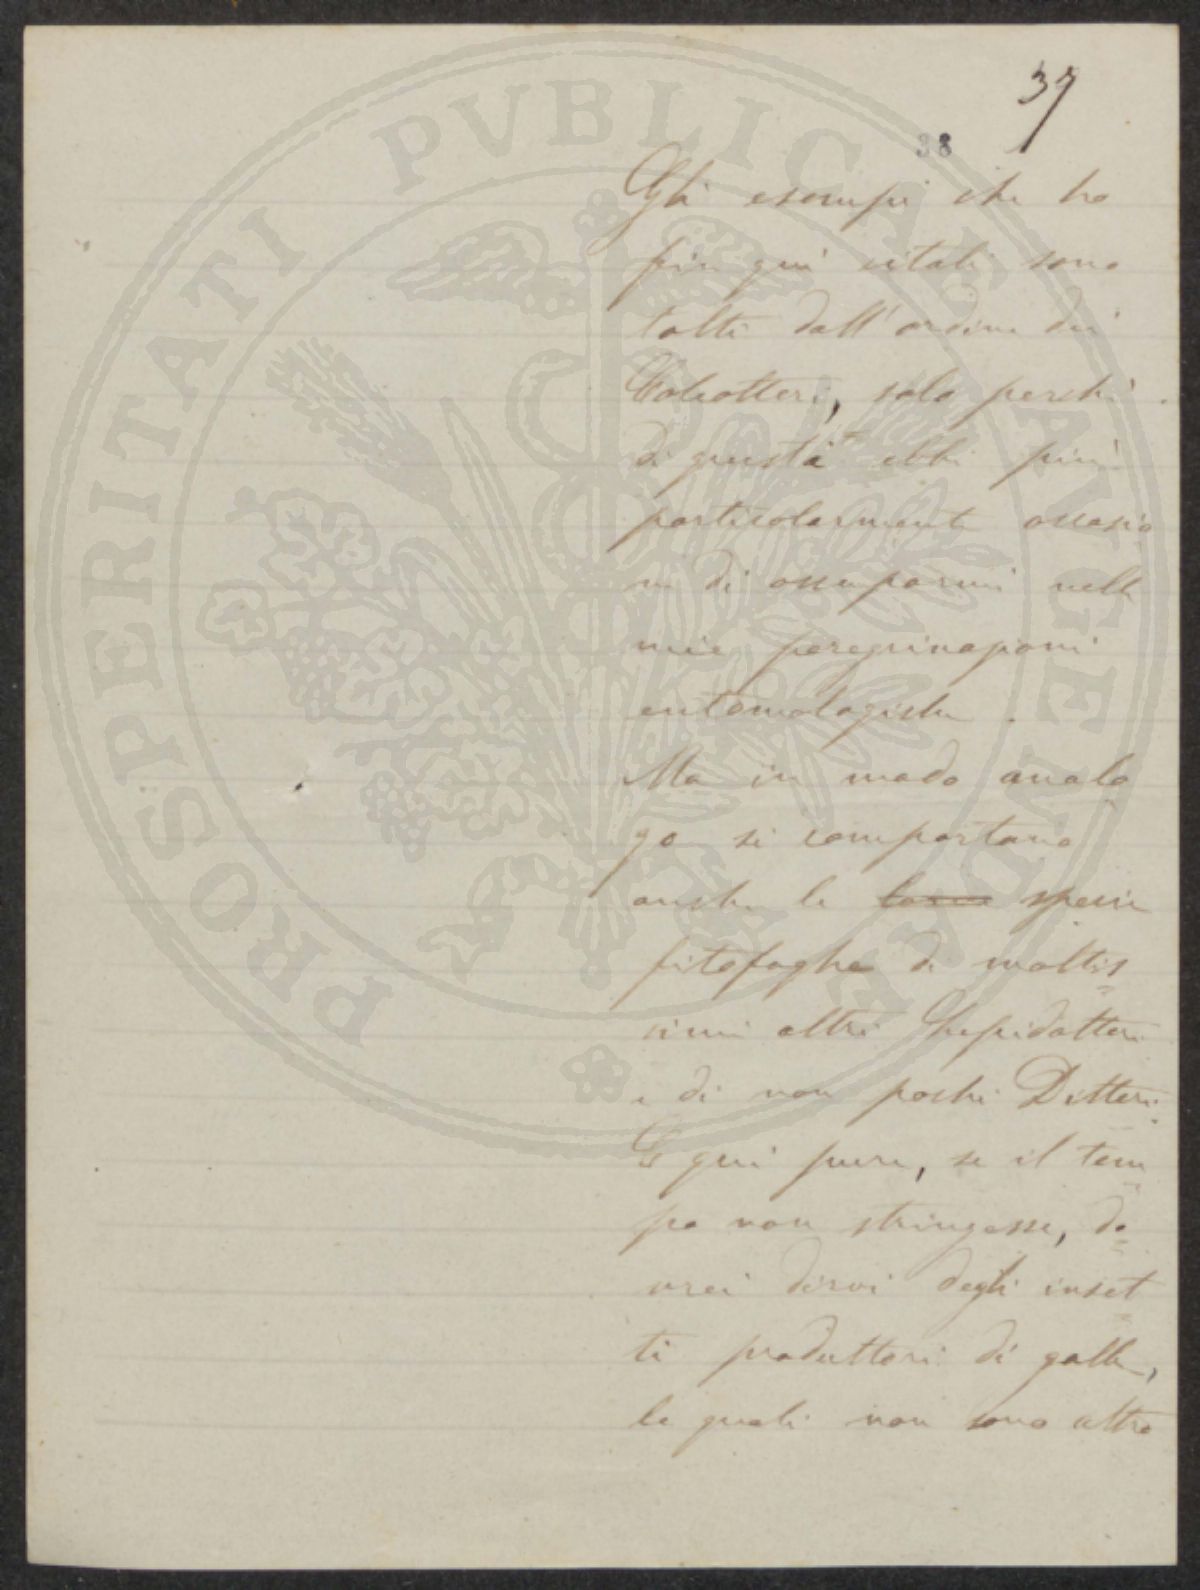 37
38
Gli esempi che ho
fin qui citati sono
tolti dall'ordine dei
Coleotteri, solo perchè
di questi ebbi più
particolarmente occasio
ne di occuparmi nelle
mie peregrinazioni
entomologiche.
Ma in modo analo
go si comportano
anche le larve specie
fitofaghe di moltis
simi altri Lepidotteri
e di non pochi Ditteri.
E qui pure, se il tem
po non stringesse, do
vrei dirvi degli inset
ti produttori di galle,
le quali non sono altro
PROSPERITATI PVBLICAE AVGENDAE